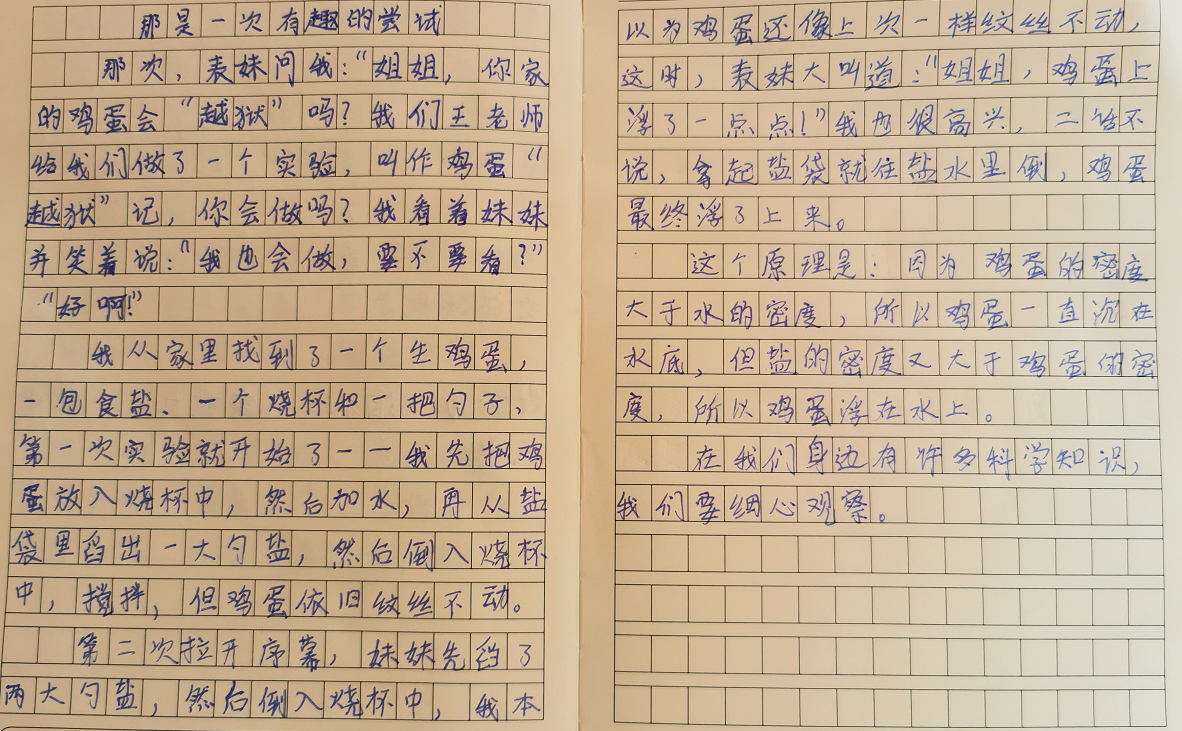 那是一次有趣的尝试
那次，表妹问我：“姐姐，你家
的鸡蛋会“越狱”吗？我们王老师
给我们做了一个实验，叫作鸡蛋“
越狱”记，你会做吗？我看着妹妹
并笑着说：“我也会做，要不要看？”
“好啊！”
我从家里找到了一个生鸡蛋，
一包食盐、一个烧杯和一把勺子，
第一次实验就开始了——我先把鸡
蛋放入烧杯中，然后加水，再从盐
袋里舀出一大勺盐，然后倒入烧杯
中，搅拌，但鸡蛋依旧纹丝不动。
第二次拉开序幕，妹妹先舀了
两大勺盐，然后倒入烧杯中，我本
以为鸡蛋还像上次一样纹丝不动，
这时，表妹大叫道：“姐姐，鸡蛋上
浮了一点点！”我也很高兴，二话不
说，拿起盐袋就往盐水里倒，鸡蛋
最终浮了上来。
这个原理是：因为鸡蛋的密度
大于水的密度，所以鸡蛋一直沉在
水底，但盐的密度又大于鸡蛋的密
度，所以鸡蛋浮在水上。
在我们身边有许多科学知识，
我们要细心观察。